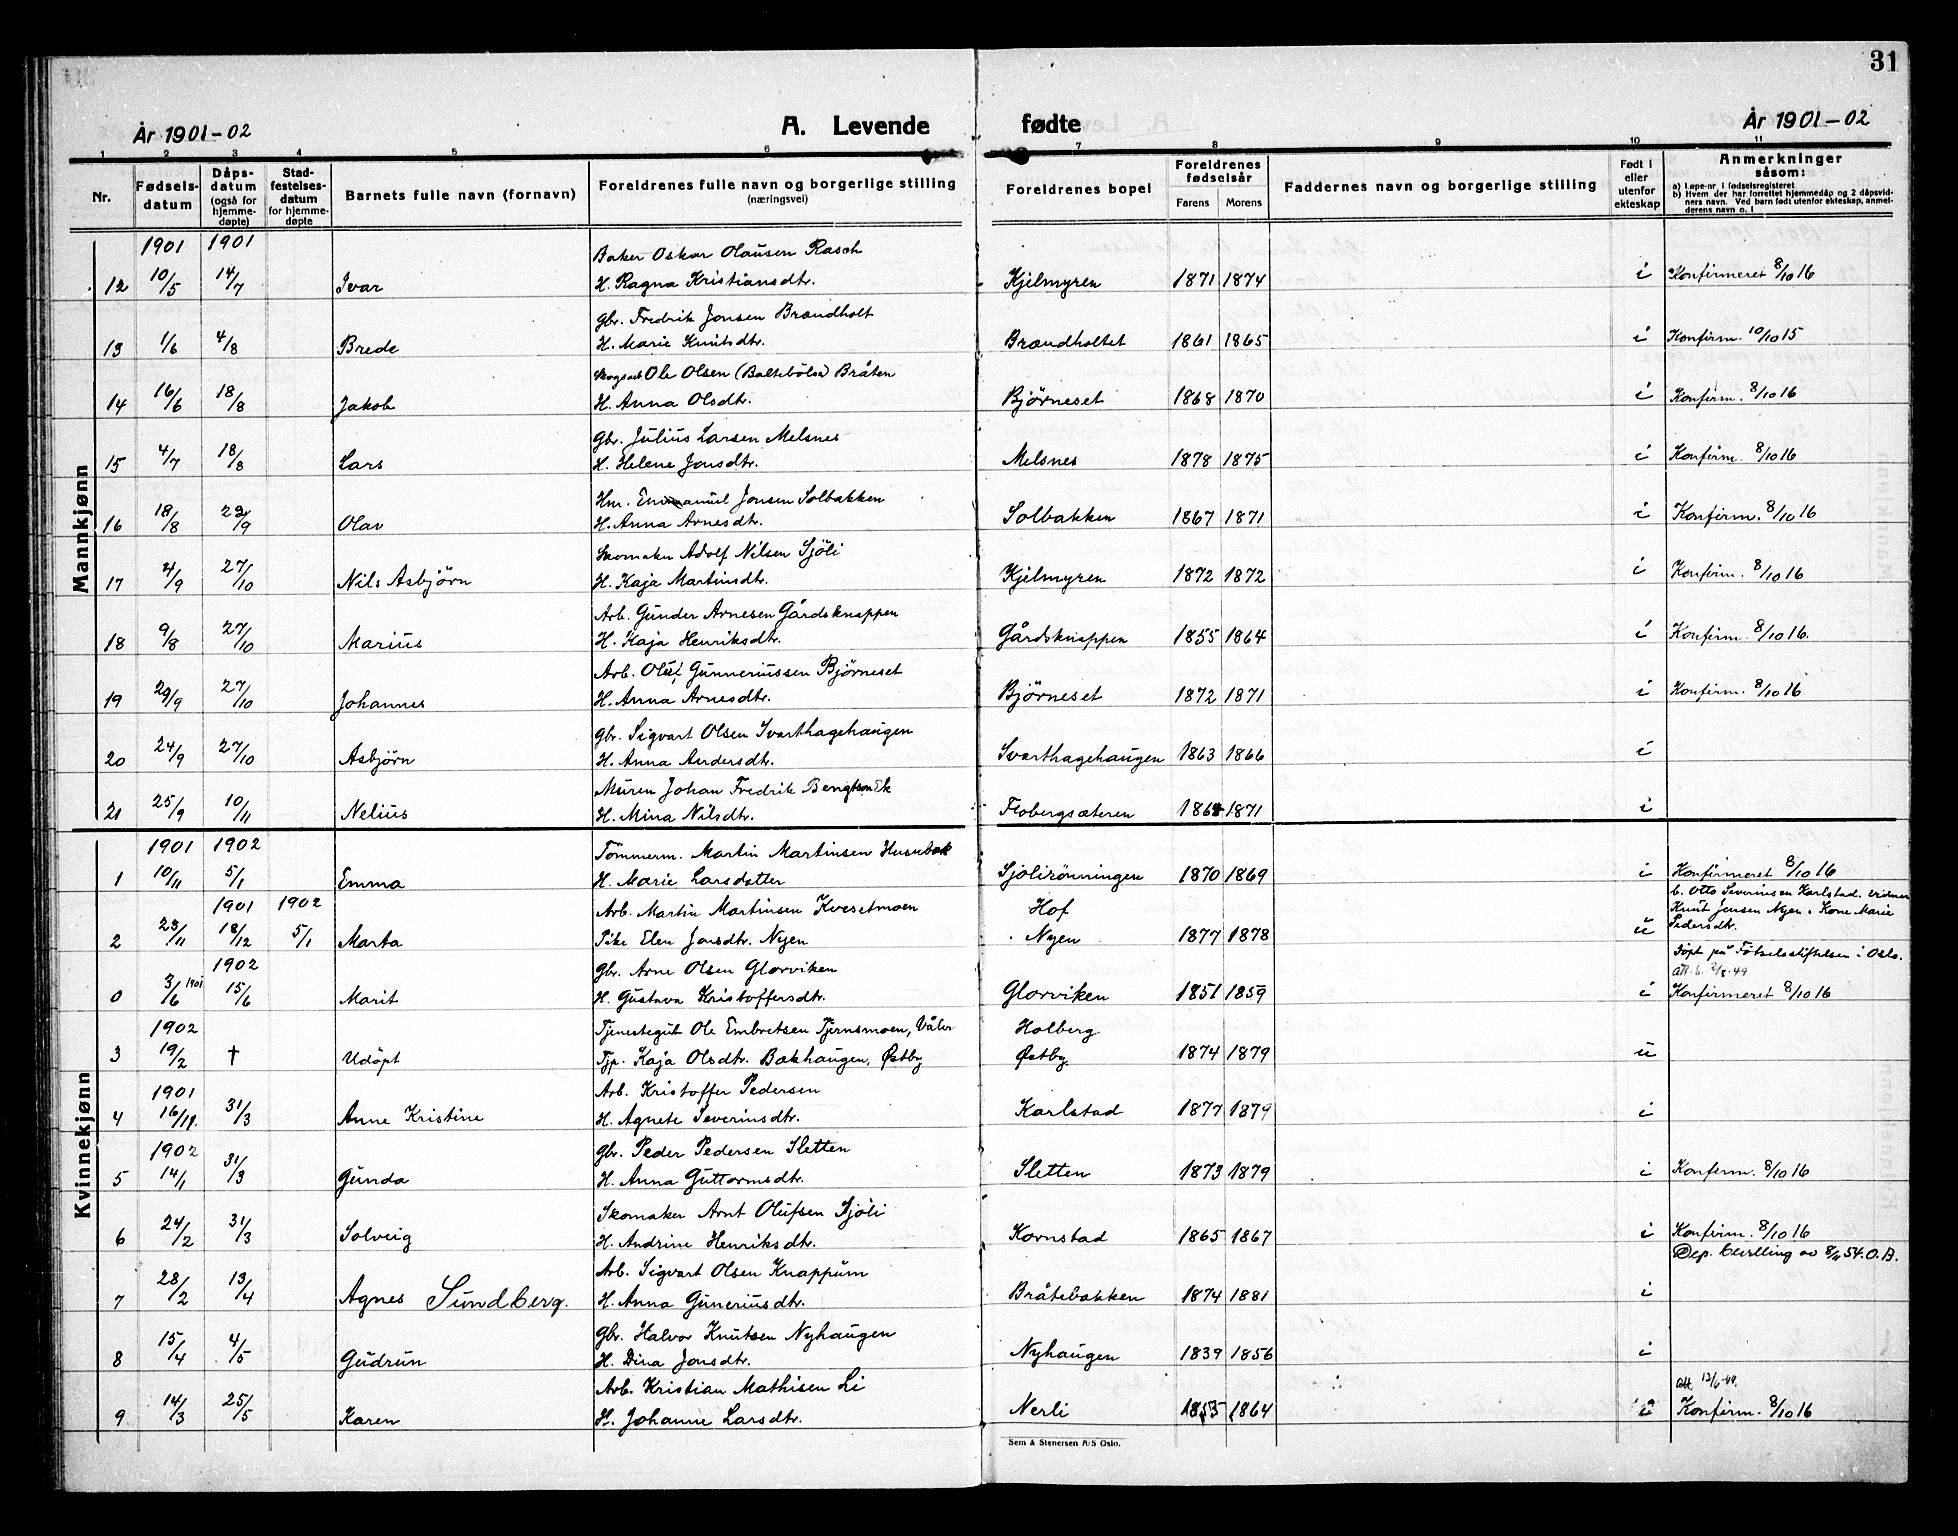 31
År 1901-02 A. Levende fødte År 1901-02
1 2 3 4 5 6 7 8 9 10 11
Nr. Fødsels-datum Dåps-datum (også for hjemme-døpte) Stad-festelses-datum for hjemme-døpte Barnets fulle navn (fornavn) Foreldrenes fulle navn og borgerlige stilling (næringsvei) Foreldrenes bopel Foreldrenes fødselsår Farens Morens Faddernes navn og borgerlige stilling Født i eller utenfor ekteskap Anmerkninger såsom:
a) Løpe-nr. i fødselsregisteret
b) Hvem der har forrettet hjemmedåp og 2 dåpsvid-
ners navn. Ved barn født utenfor ekteskap, anmel-
derens navn o. l
Mannkjønn
1901 1901 Baker Oskar Olausen Rasch
12 10/5 14/7 Ivar H. Ragna Kristiansdtr. Kjelmyren 1871 1874 i Konfirmeret 8/10 16
Gbr. Fredrik Jonsen Brandholt
13 1/6 4/8 Brede H. Marie Knutsdtr. Brandholtet 1861 1865 i Konfirm. 10/10 15
Skogsarb Ole Olsen (Baltebölsa) Bråten
14 16/6 18/8 Jakob H. Anna Olsdtr. Björneset 1868 1870 i Konfirm. 8/10 16
Gbr. Julius Larsen Melsnes
15 4/7 18/8 Lars H. Helene Jonsdtr. Melsnes 1878 1875 i Konfirm. 8/10 16
Hm. Emmanuel Jonsen Solbakken
16 18/8 29/9 Olav H. Anna Arnesdtr. Solbakken 1867 1871 i Konfirm. 8/10 16
Skomaker Adolf Nilsen Sjöli
17 4/9 27/10 Nils Asbjörn H. Kaja Martinsdtr. Kjelmyren 1872 1872 i Konfirm. 8/10 16
Arb. Gunder Arnesen Gårdsknappen
18 9/8 27/10 Marius H. Kaja Henriksdtr. Gårdsknappen 1855 1864 i Konfirm. 8/10 16.
Arb. Oluf Gunneriussen Björneset
19 29/9 27/10 Johannes H. Anna Arnesdtr. Björneset 1872 1871 i Konfirm. 8/10 16
Gbr. Sigvart Olsen Svarthagehaugen
20 24/9 27/10 Asbjörn H. Anna Andersdtr. Svarthagehaugen 1863 1866 i
Muren Johan Fredrik Bengtson Ek
21 25/9 10/11 Nelius H. Mina Nilsdtr. Flobergsæteren 1871 i
Kvinnekjønn
1901 1902 Tömmerm. Martin Martinsen Husubak
1 10/11 5/1 Emma H. Marie Larsdatter Sjölirönningen 1870 1869 i Konfirmeret 8/10 16
1901 1902 Arb. Martin Martinsen Kvesetmoen Hof b. Otto Severinsen Karlstad. Vidner
Knut Jensen Nyen o. Kone Marie
2 23/11 18/12 5/1 Marta Pike Elen Jonsdtr. Nyen Nyen 1877 1878 u Pedersdtr.
1902 Gbr. Arne Olsen Glorviken Döpt på Fötselsstiftelsen i Oslo.
att. s. 2/8-49
0 3/6 1901 15/6 Marit H. Gustava Kristoffersdtr. Glorviken 1851 1859 i Konfirmeret 8/10 16
1902 Tjenestegut Ole Embretsen Tjernsmoen, Våler Holberg
3 19/2 † Udöpt Tjp. Kaja Olsdtr. Bakhaugen, Østby Østby 1874 1879 u
1901 Arb. Kristoffer Pedersen
4 31/3 Anne Kristine H. Agnete Severinsdtr. Karlstad 1877 1879 i
1902 Gbr. Peder Pedersen Sletten
5 14/1 31/3 Gunda H. Anna Guttormsdtr. Sletten 1873 1879 i Konfirm. 8/10 16
Skomaker Arnt Olufsen Sjöli
6 24/2 31/3 Solveig H. Andrine Henriksdtr. Kornstad 1865 1867 i Konfirm. 8/10 16
Arb. Sigvart Olsen Knappum Dep. 54. O. A.
7 28/2 13/4 Agnes Sundberg. H. Anna Guneriusdtr. Bråtebakken 1874 1881 i
Gbr. Halvor Knutsen Nyhaugen
8 15/4 4/5 Gudrun H. Dina Jonsdtr. Nyhaugen 1839 1856 i
Arb. Kristian Mathisen Li att 13/6-49.
9 14/3 25/5 Karen H. Johanne Larsdtr. Nerli 1864 Konfirm. 8/10 16
Sem & Stenersen A/S Oslo.